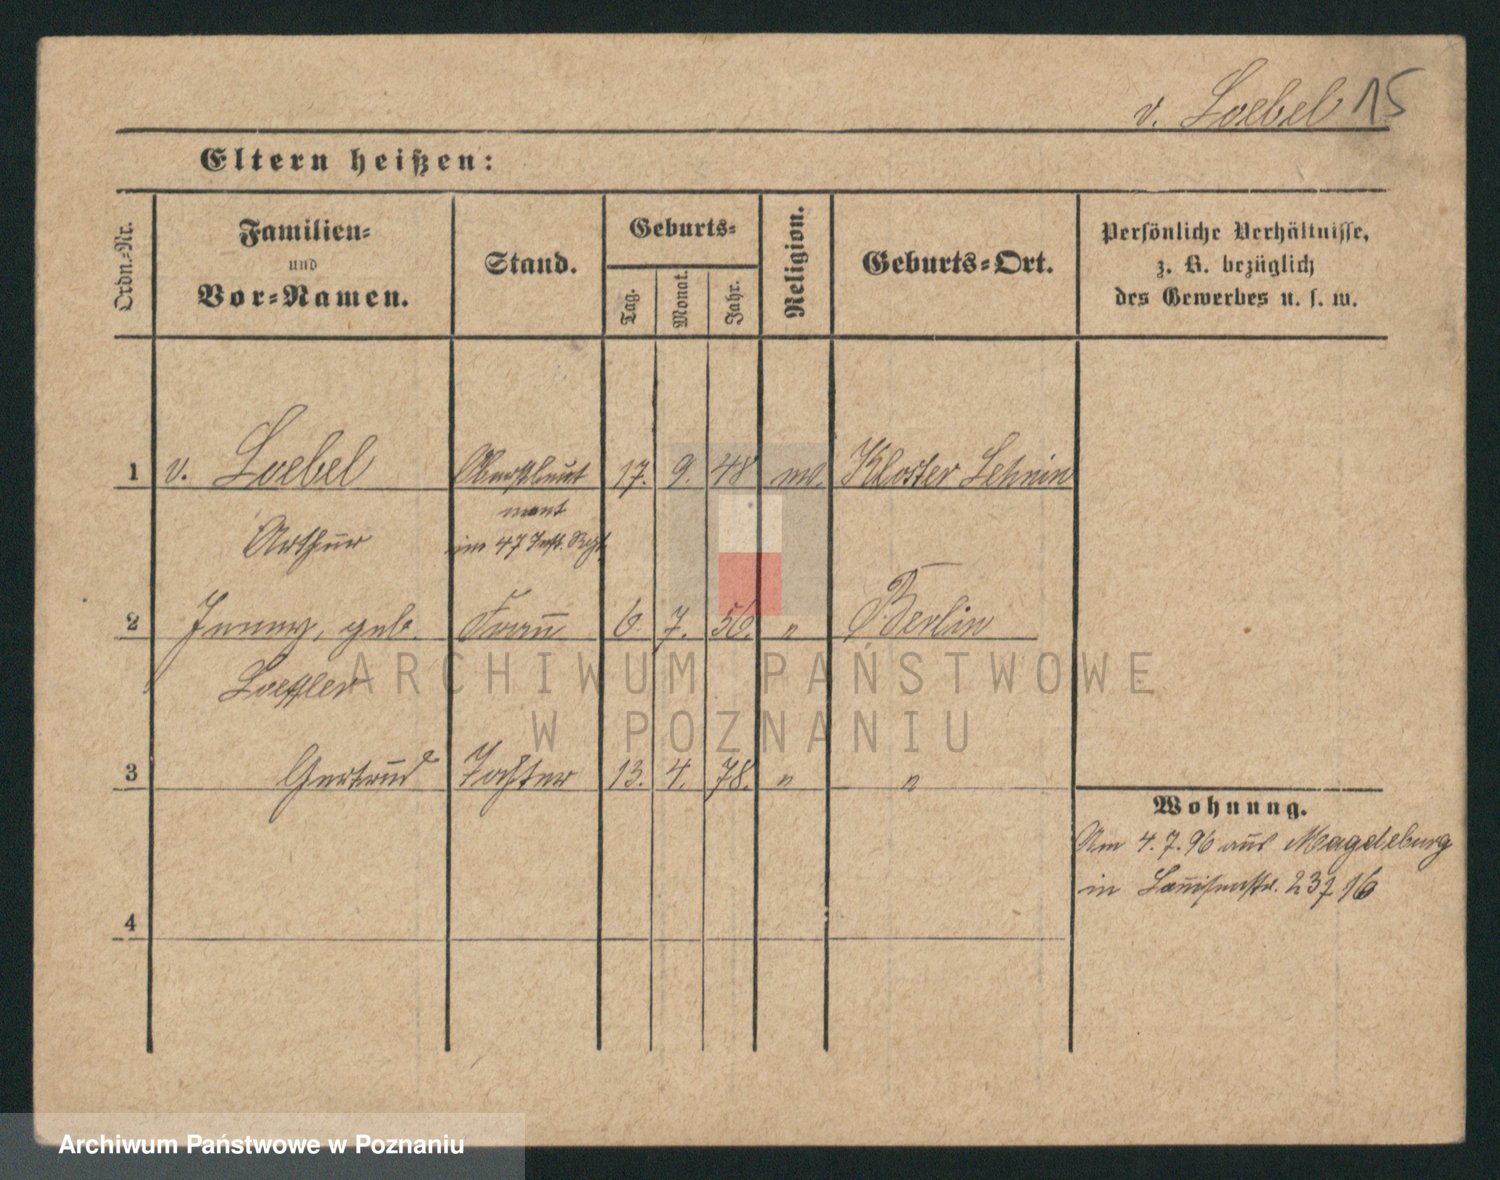 v. Loebel 15
Eltern heißen:
Ordn.-Nr.
Familien-
und
Vor-Namen.
Stand.
Geburts-
Tag.
Monat.
Jahr.
Religion.
Geburts-Ort.
Persönliche Verhältnisse,
z. B. bezüglich
des Gewerbes u. s. w.
1 v. Loebel Oberstleut 17. 9. 48 Kloster Lehnin
nant
Arthur im 47 Inft. Regt.
2 Jenny, geb. Frau 6. 7. 56. " Berlin
Loeffler
3 Gertrud Tochter 13. 4. 78. " "
Wohnung.
Am 4. 7. 96 aus Magdeburg
in Louisenstr. 16
4
ARCHIWUM PAŃSTWOWE
W POZNANIU
Archiwum Państwowe w Poznaniu